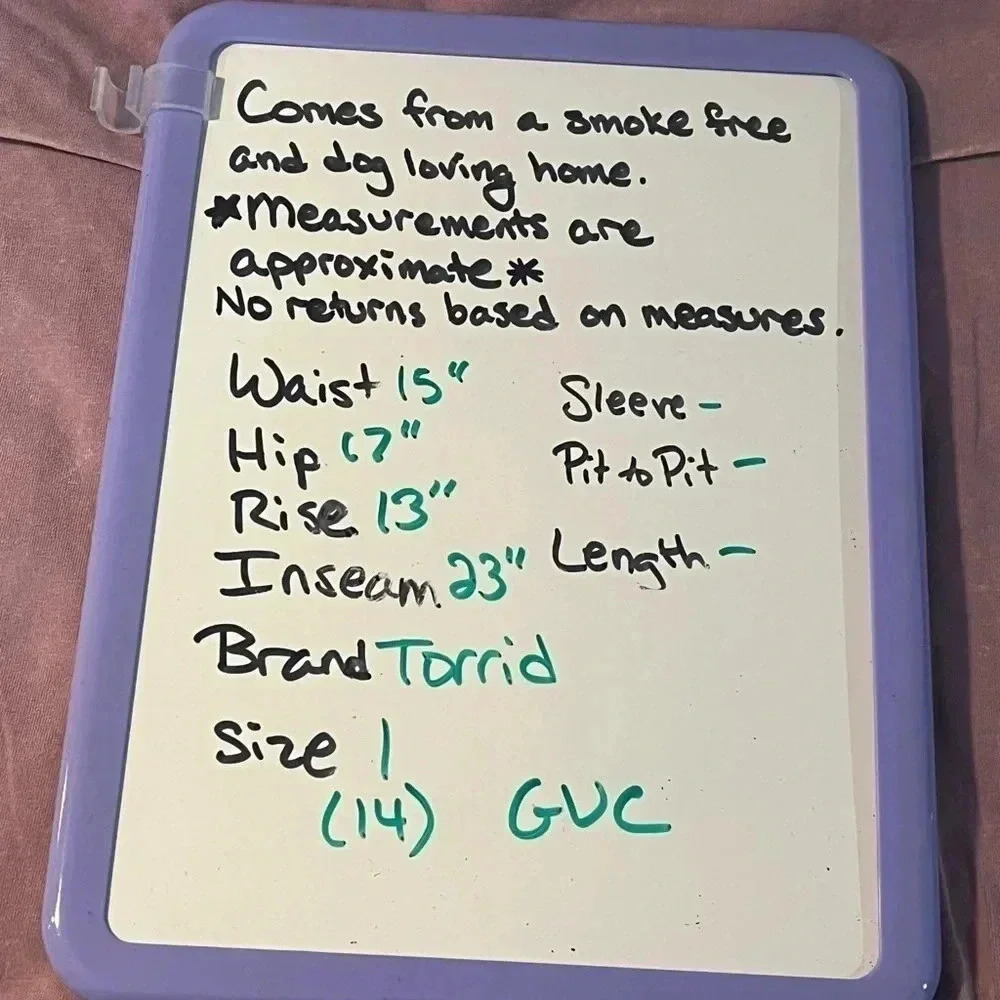 Comes from a smoke free
and dog loving home.
*Measurements are
approximate*
No returns based on measures.
Waist 15"
Hip 17"
Rise 13"
Inseam 23"
Sleeve -
Pit to Pit -
Length -
Brand Torrid
Size 1
(14) GUC